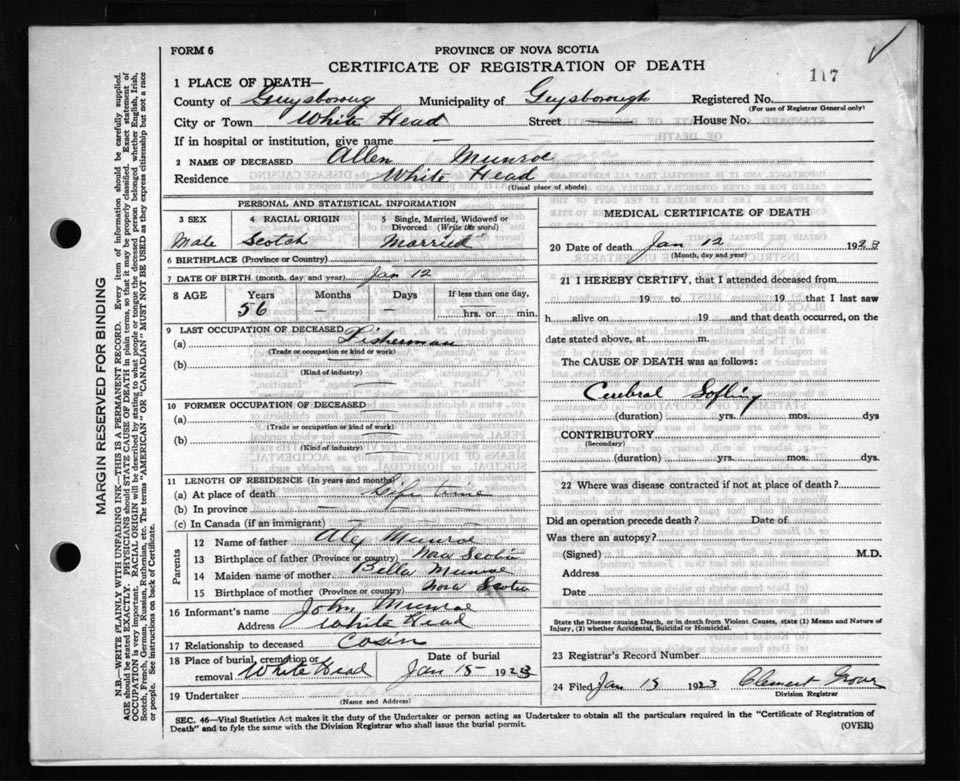 FORM 6
PROVINCE OF NOVA SCOTIA
CERTIFICATE OF REGISTRATION OF DEATH
117
1 PLACE OF DEATH—
County of Guysboroug Municipality of Guysborough Registered No.
(For use of Registrar General only)
City or Town White Head Street House No.
If in hospital or institution, give name —
2 NAME OF DECEASED Allen Munroe
Residence White Head
(Usual place of abode)
PERSONAL AND STATISTICAL INFORMATION
3 SEX 4 RACIAL ORIGIN 5 Single, Married, Widowed or Divorced (Write the word)
Male Scotch Married
6 BIRTHPLACE (Province or Country)
7 DATE OF BIRTH (month, day and year) Jan 12
8 AGE Years Months Days If less than one day,
56 — — hrs. or min.
9 LAST OCCUPATION OF DECEASED
(a) Fisherman
(Trade or occupation or kind or work)
(b)
(Kind of industry)
10 FORMER OCCUPATION OF DECEASED
(a)
(Trade or occupation or kind of work)
(b)
(Kind of industry)
11 LENGTH OF RESIDENCE (In years and months)
(a) At place of death Life time
(b) In province — —
(c) In Canada (if an immigrant) —
Parents
12 Name of father Alex Munroe
13 Birthplace of father (Province or country) Nova Scotia
14 Maiden name of mother Bella Munroe
15 Birthplace of mother (Province or country) Nova Scotia
16 Informant's name John Munroe
Address White Head
17 Relationship to deceased Cosin
18 Place of burial, cremation or removal White Head Date of burial Jan 15 1923
19 Undertaker
(Name and Address)
MEDICAL CERTIFICATE OF DEATH
20 Date of death Jan 12 1923
(Month, day and year)
21 I HEREBY CERTIFY, that I attended deceased from
19 to 19 that I last saw
h alive on 19 and that death occurred, on the
date stated above, at m.
The CAUSE OF DEATH was as follows:
Cerebral Softing
(duration) yrs. mos. dys
CONTRIBUTORY
(Secondary)
(duration) yrs. mos. dys
22 Where was disease contracted if not at place of death?
Did an operation precede death? Date of
Was there an autopsy?
(Signed) M.D.
Address
Date
State the Disease causing Death, or in death from Violent Causes, state (1) Means and Nature of
Injury, (2) whether Accidental, Suicidal or Homicidal.
23 Registrar's Record Number
24 Filed Jan 15 1923 Clement
Division Registrar
SEC. 46—Vital Statistics Act makes it the duty of the Undertaker or person acting as Undertaker to obtain all the particulars required in the "Certificate of Registration of
Death" and to fyle the same with the Division Registrar who shall issue the burial permit. (OVER)
MARGIN RESERVED FOR BINDING
N.B.—WRITE PLAINLY WITH UNFADING INK—THIS IS A PERMANENT RECORD. Every item of information should be carefully supplied.
AGE should be stated EXACTLY. PHYSICIANS should STATE CAUSE OF DEATH in plain terms, so that it may be properly classified. Exact statement of
OCCUPATION is very important. RACIAL ORIGIN will be described by stating to what people or tongue the deceased person belonged whether English, Irish,
Scotch, French, German, Russian, Ruthenian, etc. The terms "AMERICAN" OR "CANADIAN" MUST NOT BE USED as they express citizenship but not a race
or people. See instructions on back of Certificate.